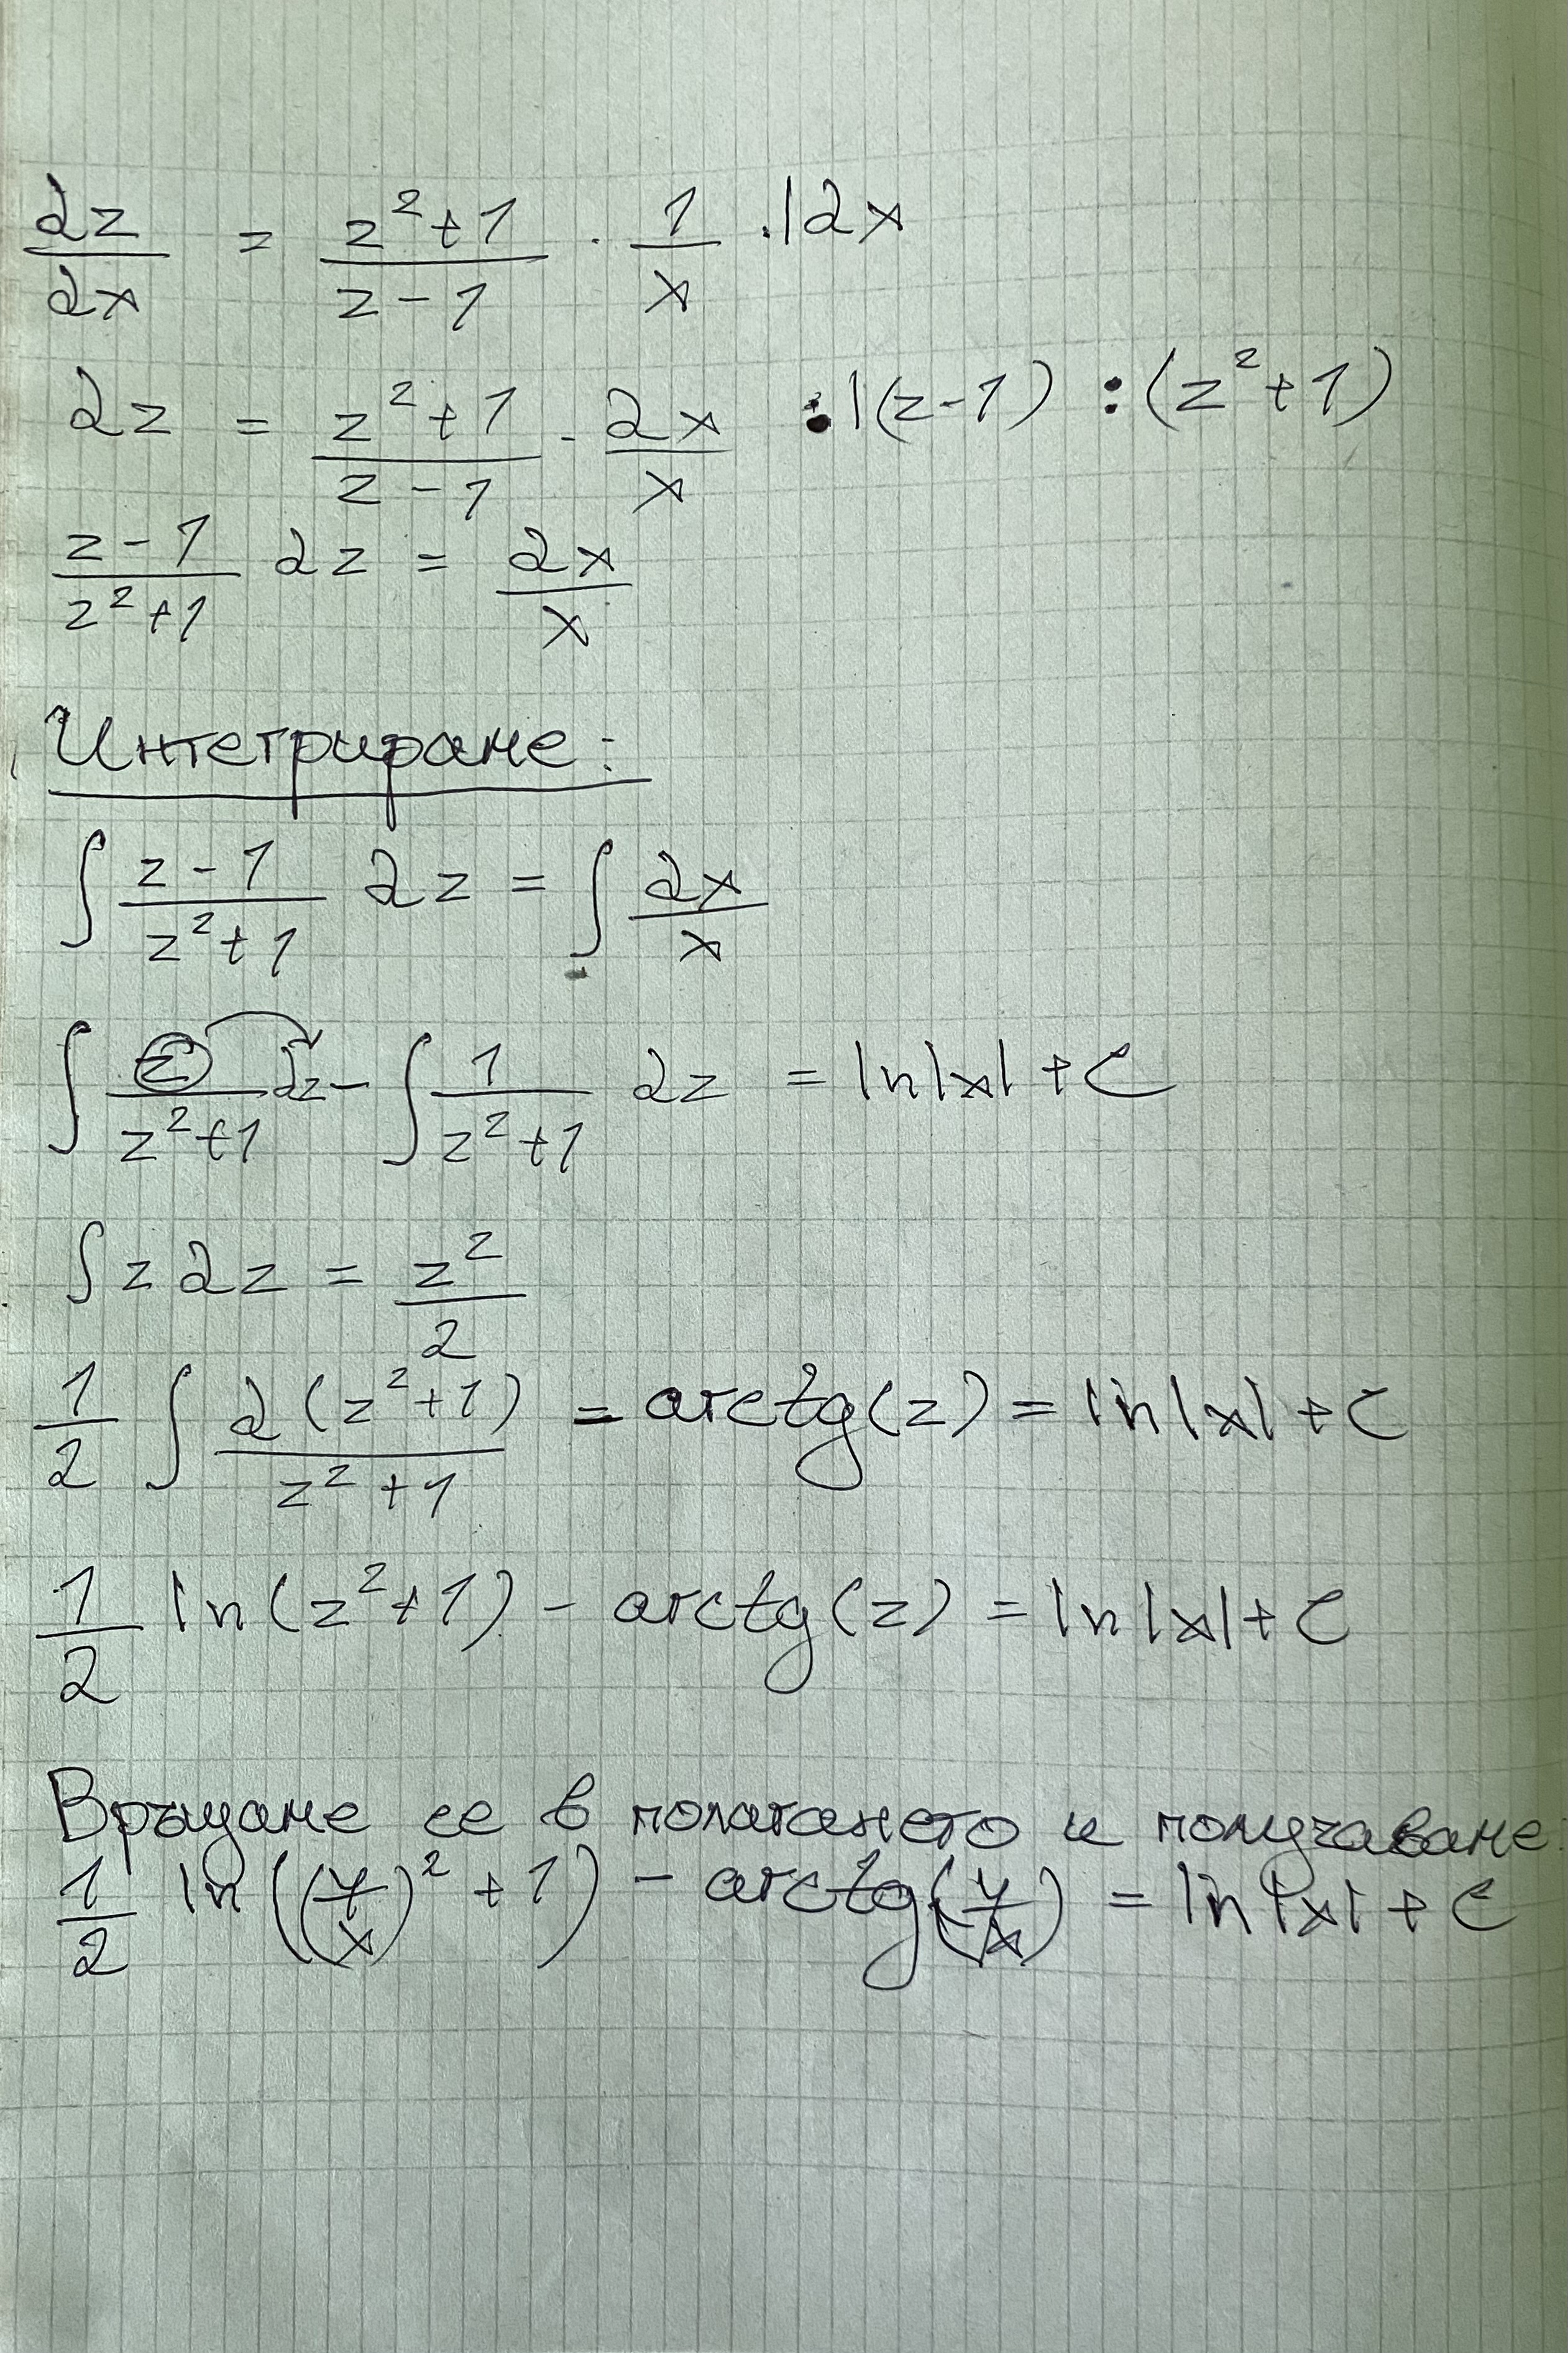 dz/dx = (z²+1)/(z-1) · 1/x .|dx
dz = (z²+1)/(z-1) · dx/x :|(z-1) :(z²+1)
(z-1)/(z²+1) dz = dx/x
Интегриране:
∫ (z-1)/(z²+1) dz = ∫ dx/x
∫ z/(z²+1) dz - ∫ 1/(z²+1) dz = ln|x| + C
∫ z dz = z²/2
1/2 ∫ d(z²+1)/(z²+1) = arctg(z) = ln|x| + C
1/2 ln(z²+1) - arctg(z) = ln|x| + C
Връщаме се в полагането и получаваме:
1/2 ln((y/x)² + 1) - arctg(y/x) = ln|x| + C